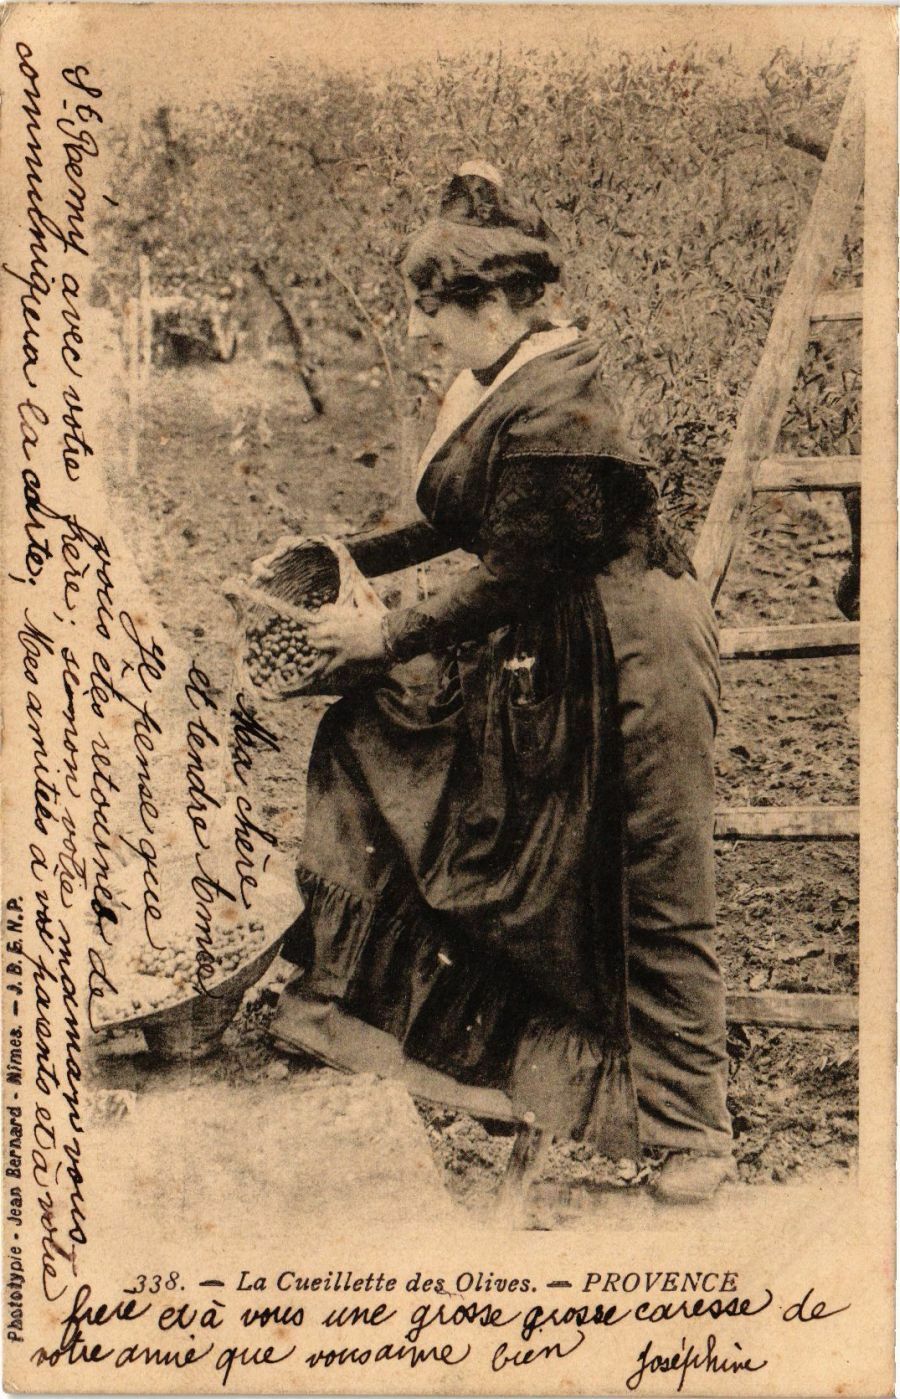 Ma chère
et tendre amie,
Je pense que
vous êtes retournée de
St Rémy avec votre frère; sinon votre maman vous
communiquera la carte; Mes amitiés à vos parents et à votre
frère et à vous une grosse grosse caresse de
votre amie que vous aime bien
Joséphine
338. — La Cueillette des Olives. — PROVENCE
Phototypie - Jean Bernard - Nîmes. — J. B. E. N. P.